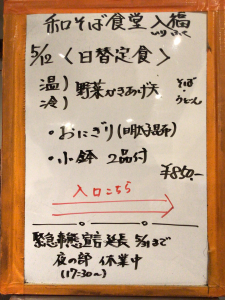 和そば食堂 入福
いり ふく
5/12 〈日替定食〉
温)
冷) 野菜かきあげ天 そば
・うどん
・おにぎり(明太子昆布)
・小鉢 2品付
¥850.-
入口こちら
緊急事態宣言延長 5/31まで
夜の部 休業中
(17:30〜)